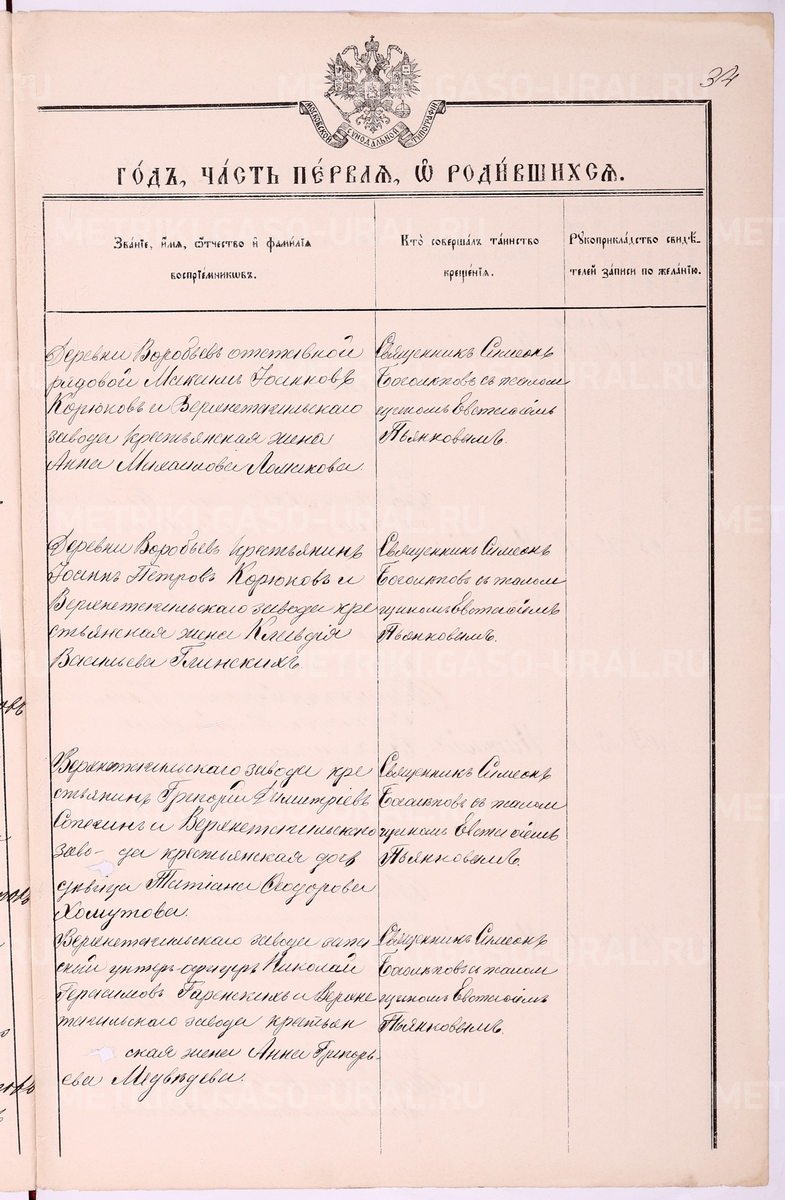 34
МОСКОВСКОЙ СѴНОДАЛЬНОЙ ТИПОГРАФІИ
ГО́ДЪ, ЧА́СТЬ ПЕ́РВАѦ, Ѡ҆ РОДИ́ВШИХСѦ.
Зва́нїе, и҆́мѧ, ѻ҆́тчество и҆ фами́лїѧ
воспрїе́мникѡвъ.
Кто̀ соверша́лъ та́инство
креще́нїѧ.
Рꙋкоприкла́дство свидѣ́-
телей за́писи по жела́нїю.
Деревни Воробьевъ отставной
рядовой Максимъ Іоанновъ
Корюковъ и Верхнетагильскаго
завода крестьянская жена
Анна Михаилова
Священникъ Симеонъ
съ псаломщикомъ
Пьянковымъ.
Деревни Воробьевъ крестьянинъ
Іоаннъ Петровъ Корюковъ и
Верхнетагильскаго завода кре
стьянская жена Клавдія
Васильева Глинскихъ
Священникъ Симеонъ
съ псалом
щикомъ
Пьянковымъ.
Верхнетагильскаго завода кре
стьянинъ Григорій Димитріевъ
и Верхнетагильскаго
заво- да крестьянская
дѣвица Татіана Ѳеодорова
Хомутова.
Священникъ Симеонъ
съ псалом
щикомъ
Пьянковымъ.
Верхнетагильскаго завода запа-
сный унтеръ-офицеръ Николай
Герасимовъ и Верхне
тагильскаго завода крестьян
ская жена Анна Григорь-
ева Медвѣдева.
Священникъ Симеонъ
съ псалом
щикомъ
Пьянковымъ.
METRIKI.GASO-URAL.RU